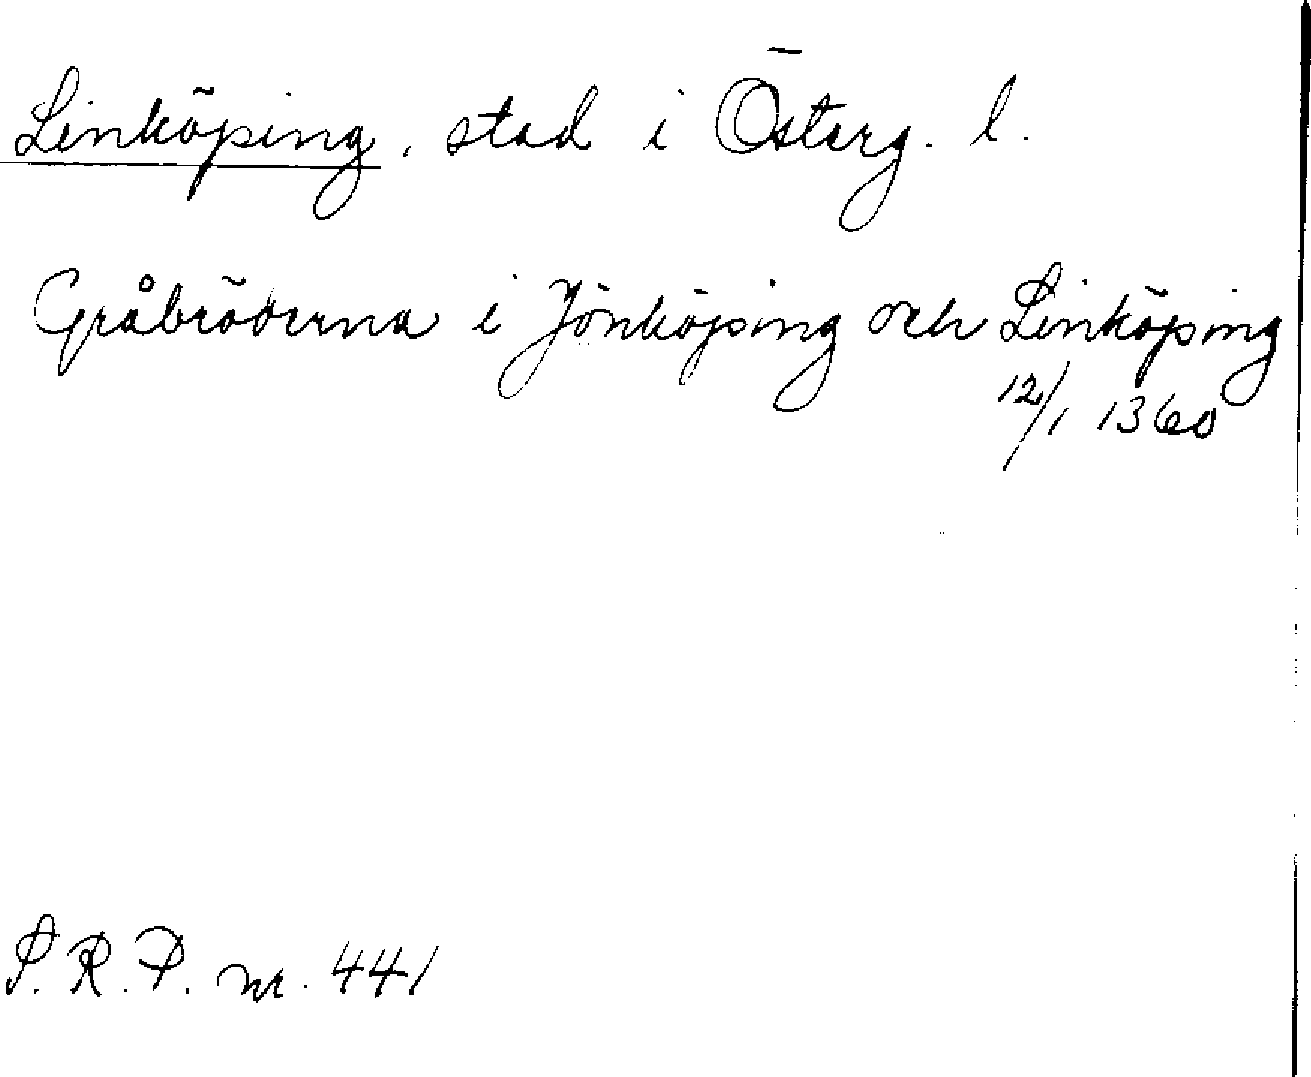 Linköping, stad i Österg. l.
Gråbröderna i Jönköping och Linköping
12/1 1360
S.R.P. nr. 441